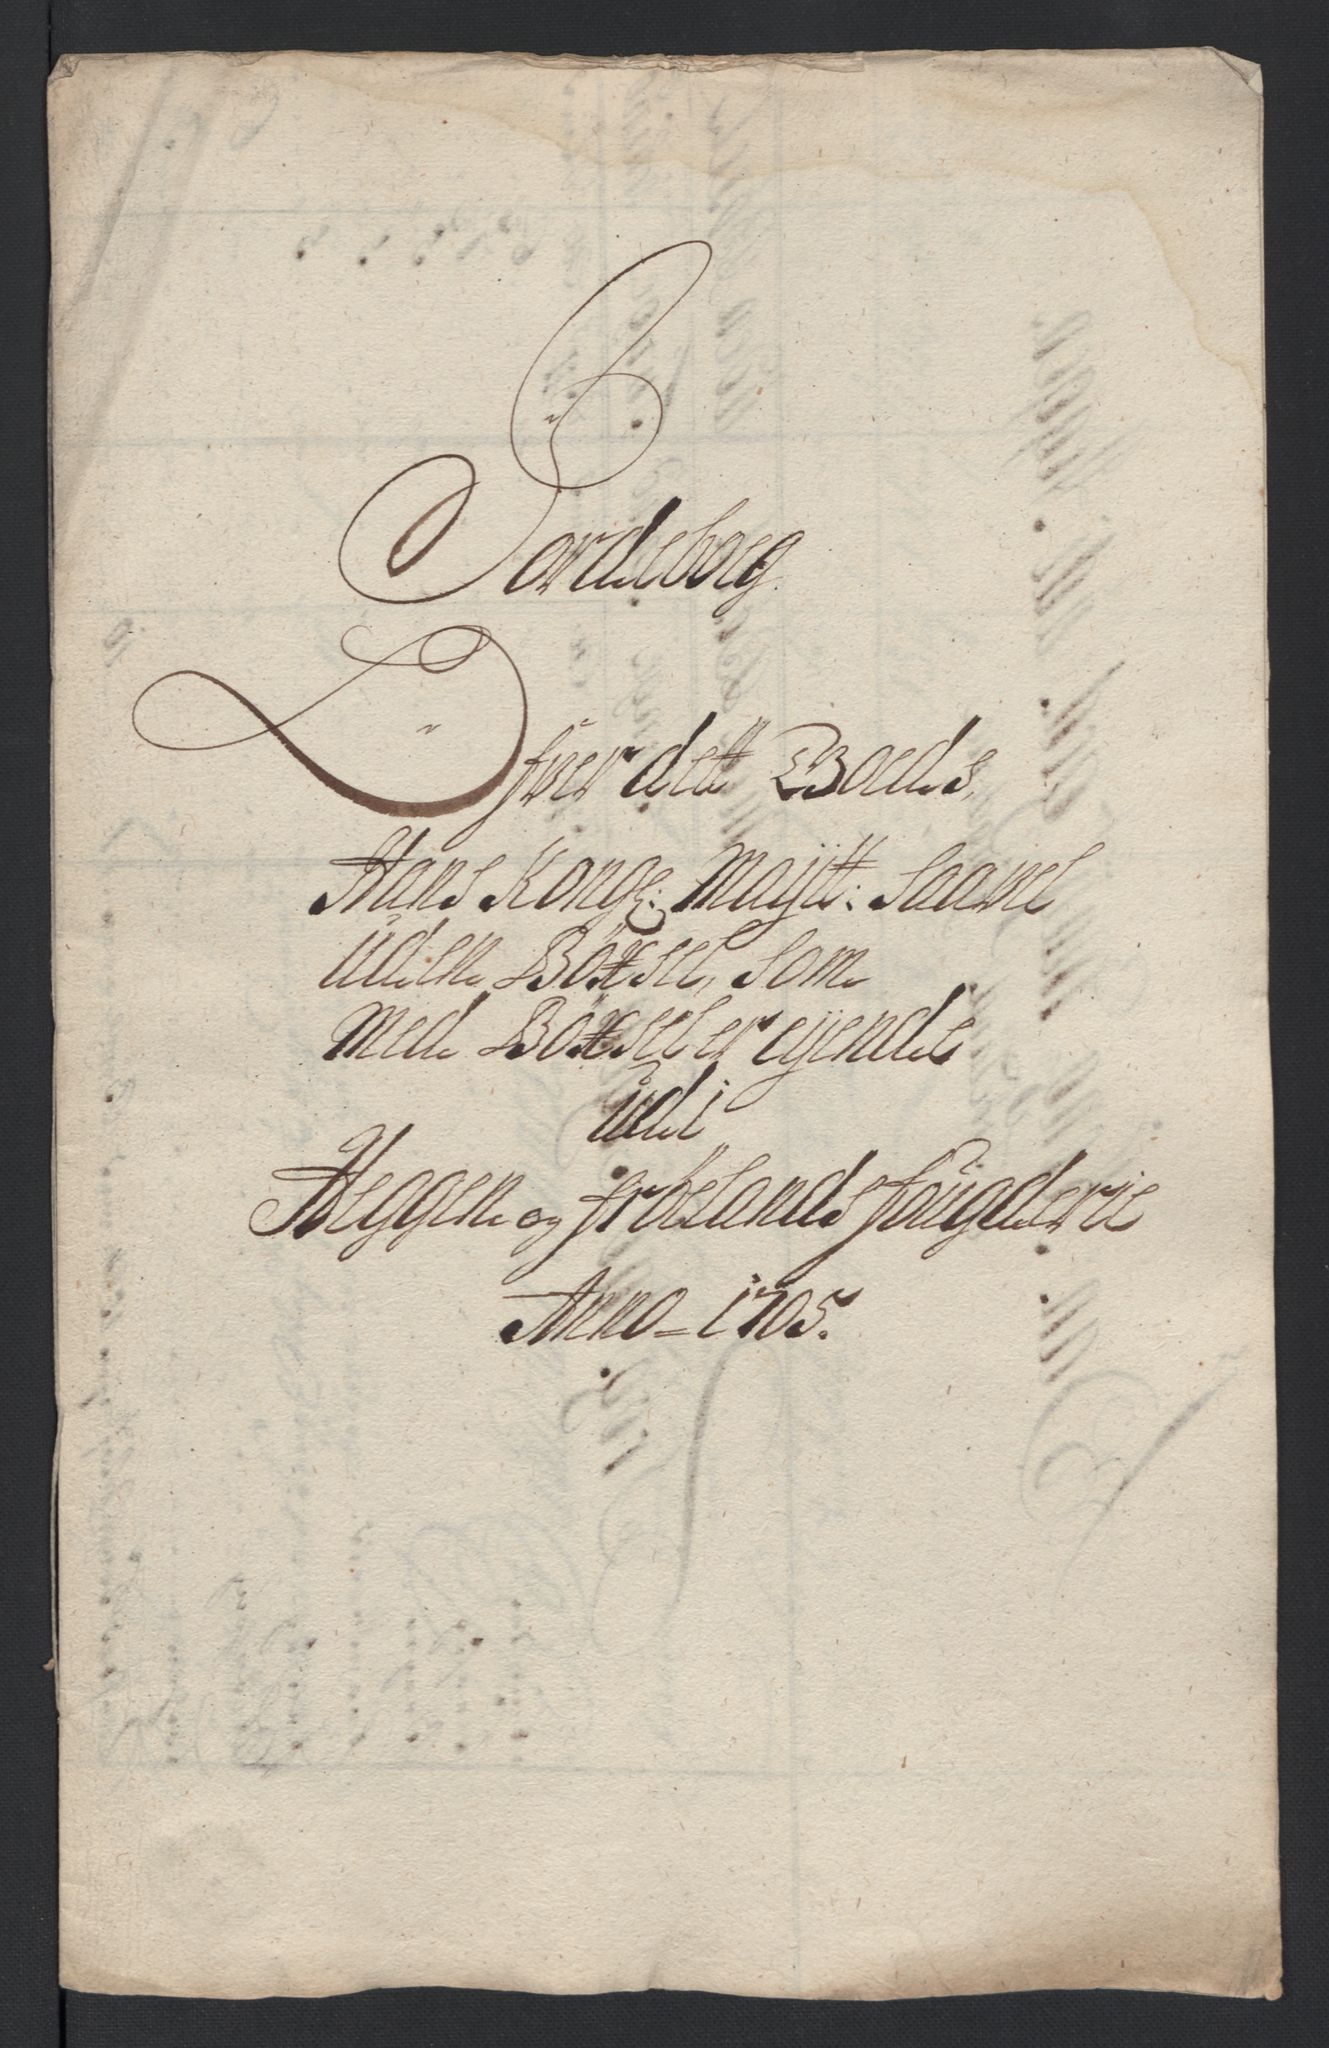 Jordebog
Ofver dett Goeds,
Hans Kongl: Mayjtt: Saavel
uden Böxsel, som
med Böxsel er eyende
udi
Heggen og Frölands fougderie
Anno = 1705.